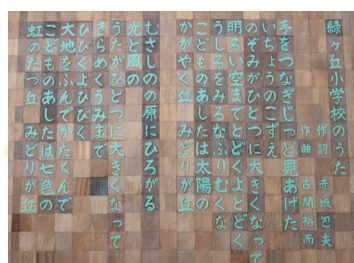 緑ヶ丘小学校のうた
作詞 赤坂芭夫
作曲 古関裕而
手をつなぎじっと見あげた
いちょうのこずえ
のぞみがひとつに大きくなって
明るい空までとどくよとどく
うしろをみるなふりむくな
こどものあしたは太陽の
かがやく丘 みどりが丘
むさしのの原にひろがる
光と風の
うたがひとつに大きくなって
きらめくうみまで
ひびくよひびく
大地をふんでかたくくんで
こどものあしたは七色の
虹のたつ丘 みどりが丘